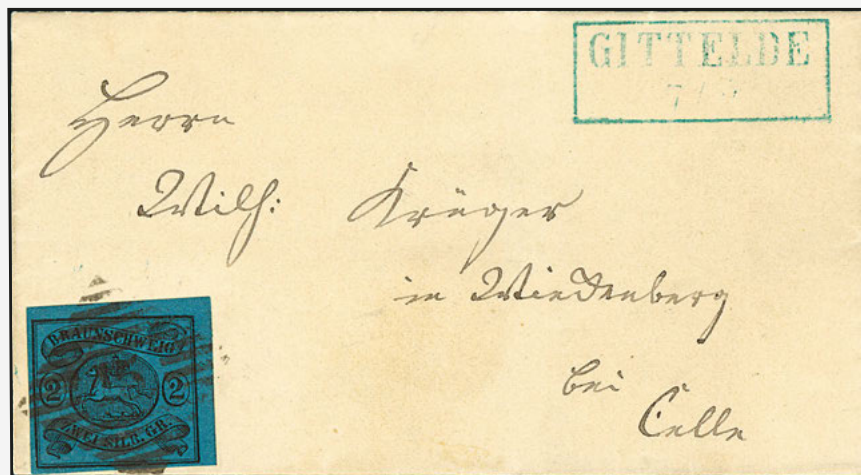 GITTELDE
7/3
Herrn
Wilh: Krüger
in Wiedenberg
bei
Celle
BRAUNSCHWEIG
2 2
ZWEI SILB. GR.